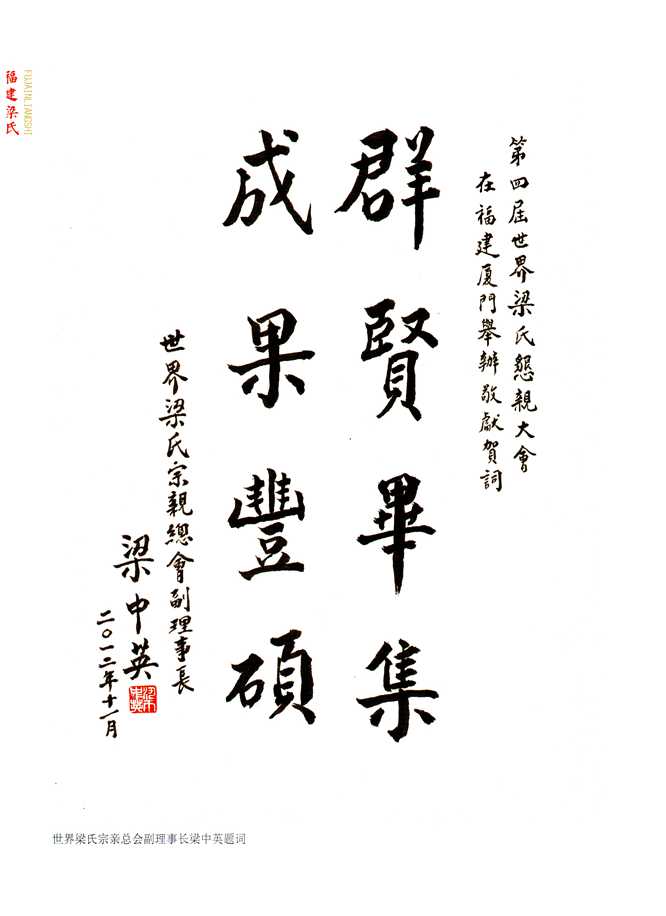 福建梁氏
FUJAINLIANGSHI
第四屆世界梁氏懇親大會
在福建厦門舉辦敬獻賀詞
群賢畢集
成果豐碩
世界梁氏宗親總會副理事長
梁中英
二〇一二年十一月
世界梁氏宗亲总会副理事长梁中英题词